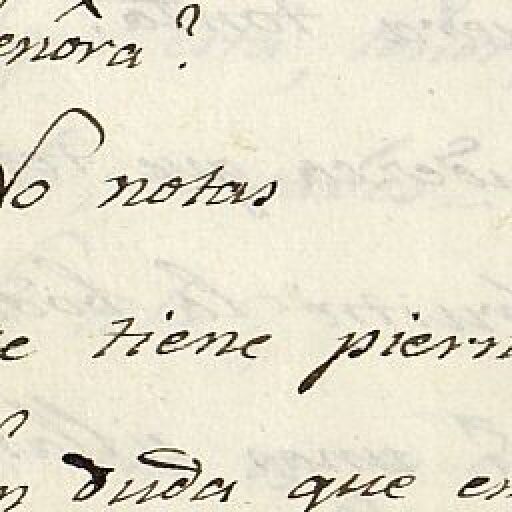 enôra?
No notas
e tiene piern
n duda que en